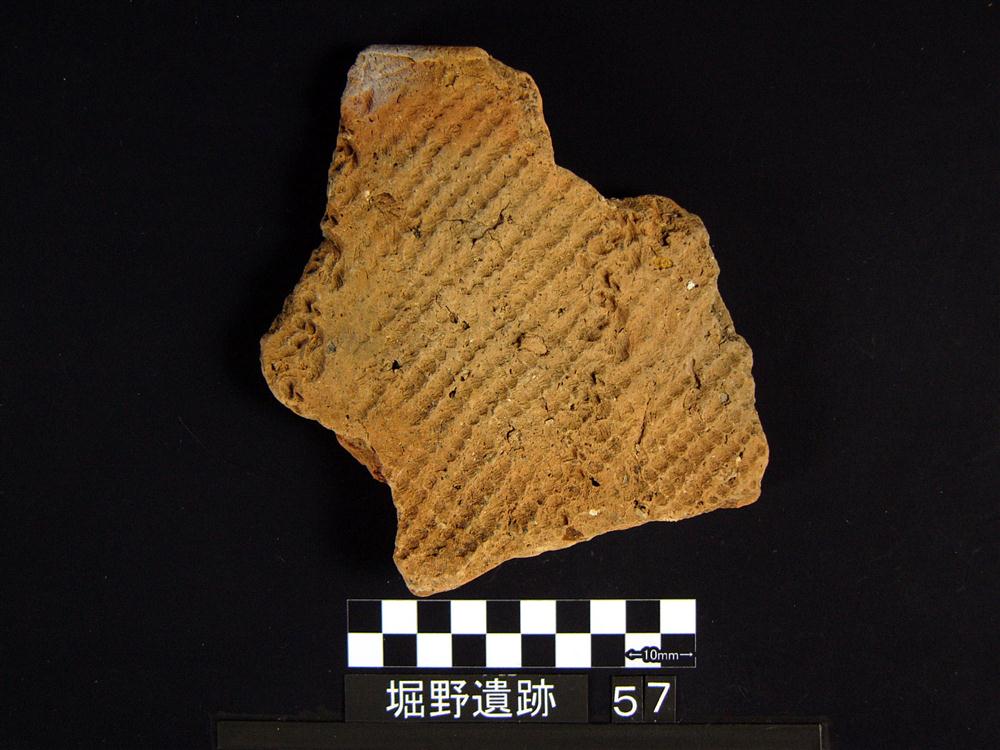 ←10mm→
堀野遺跡 57